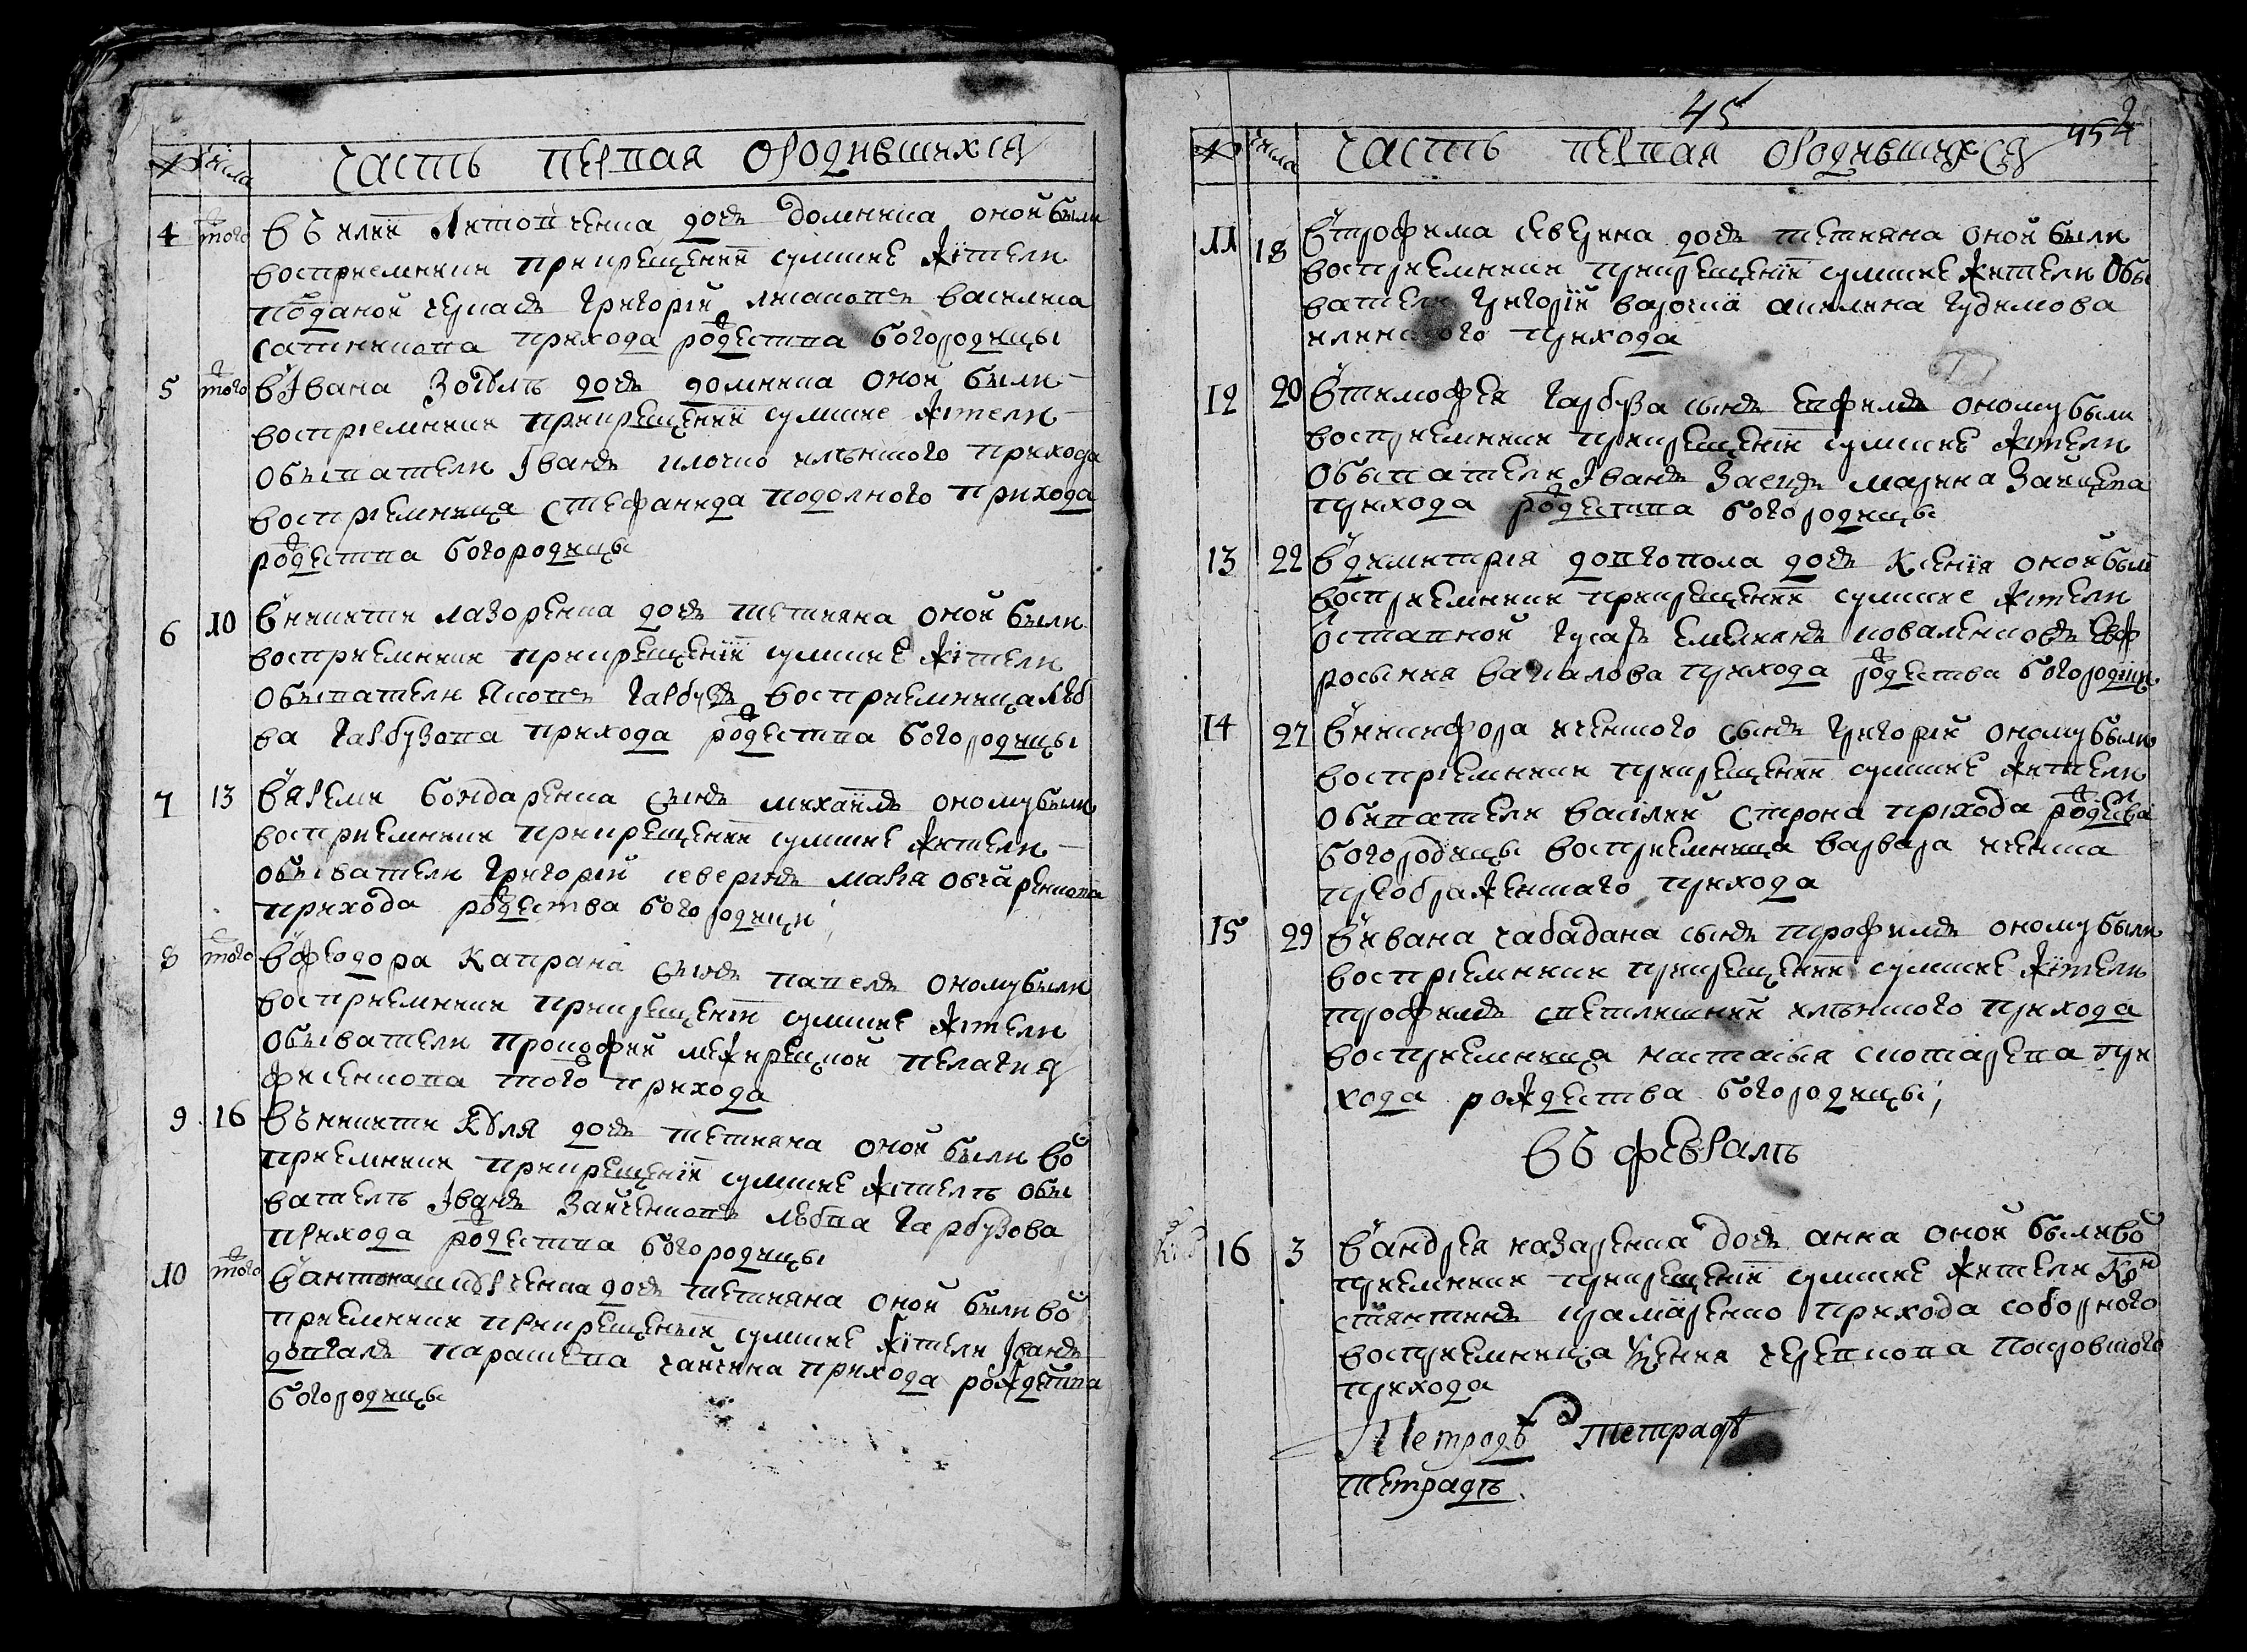 Часть первая ородившихся
№ числа
4 того въ илии Антопченка дочь Домникиа оной были
восприемники прикрещении сумские жители
подданой черкасъ Григорий Лисаковъ василиса
прихода рождества богородицы
5 того въ Ивана дочь домникиа оной были
восприемники прикрещении сумские жители
обыватели Иванъ Клочко илѣнского прихода
восприемница Стефанида подолного прихода
рождества богородицы
6 10 въ никити лазоренка дочь тетияна оной были
восприемники прикрещении сумские жители
обыватели Яковъ гарбузъ восприемница люб
ва гарбузова прихода рождества богородицы
7 13 въ яреми бондаренка сынъ михаилъ оному были
восприемники прикрещении сумские жители
обыватели Григорий северинъ мария овчаренкова
прихода рождества богородици
8 того въ феодора Капрана сынъ павелъ оному были
восприемники прикрещении сумские жители
обыватели прокофий межирецкой пелагия
фисенкова того прихода
9 16 въ никити Коля дочь тетияна оной были во
приемники прикрещении сумские жителѣ обы
вателѣ Иванъ Зайченковъ любва гарбузова
прихода рождества богородицы
10 того въ антона дочь тетияна оной были во
приемники прикрещении сумские жители Иванъ
довгаль параскева чайчина прихода рождества
богородицы
45
454
2
№ числа
Часть первая ородившихся
11 18 въ трофима северина дочь тетияна оной были
восприемники прикрещении сумские жители обы
ватели григорий акилина гудимова
илинского прихода
12 20 въ тимофея гарбуза сынъ евфимъ оному были
восприемники прикрещении сумские жители
обыватели Иванъ Заецъ марина Зайцева
прихода рождества богородицы
13 22 въ димитрия довгопола дочь Ксения оной были
восприемники прикрещении сумские жители
оставной гусаръ емелиянъ коваленковъ евф
росыния вакалова прихода рождества богородицы
14 27 въ никифора иченского сынъ григорий оному были
восприемники прикрещении сумские жители
обыватели василий строна прихода рождества
богородицы восприемница варвара иченка
преображенского прихода
15 29 въ ивана чабадана сынъ трофимъ оному были
восприемники прикрещении сумские жители
трофимъ светличний илѣнского прихода
восприемница настасия скотарева при
хода рождества богородицы
въ февралѣ
16 3 въ андрея назаренка дочь анна оной были во
приемники прикрещении сумские жители Кон
стянтинъ крамаренко прихода соборного
восприемница черевкова покровского
прихода
Тетрадь тетрадь
тетрадь